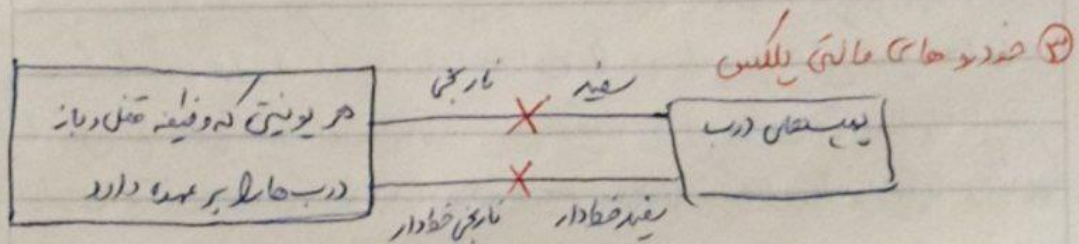 ③ خودرو های مالتی پلکس
هر یونیتی که وظیفه قفل و باز
درب ها را بر عهده دارد
نارنجی
سفید
نارنجی خط دار
سفید خط دار
پمپ های درب